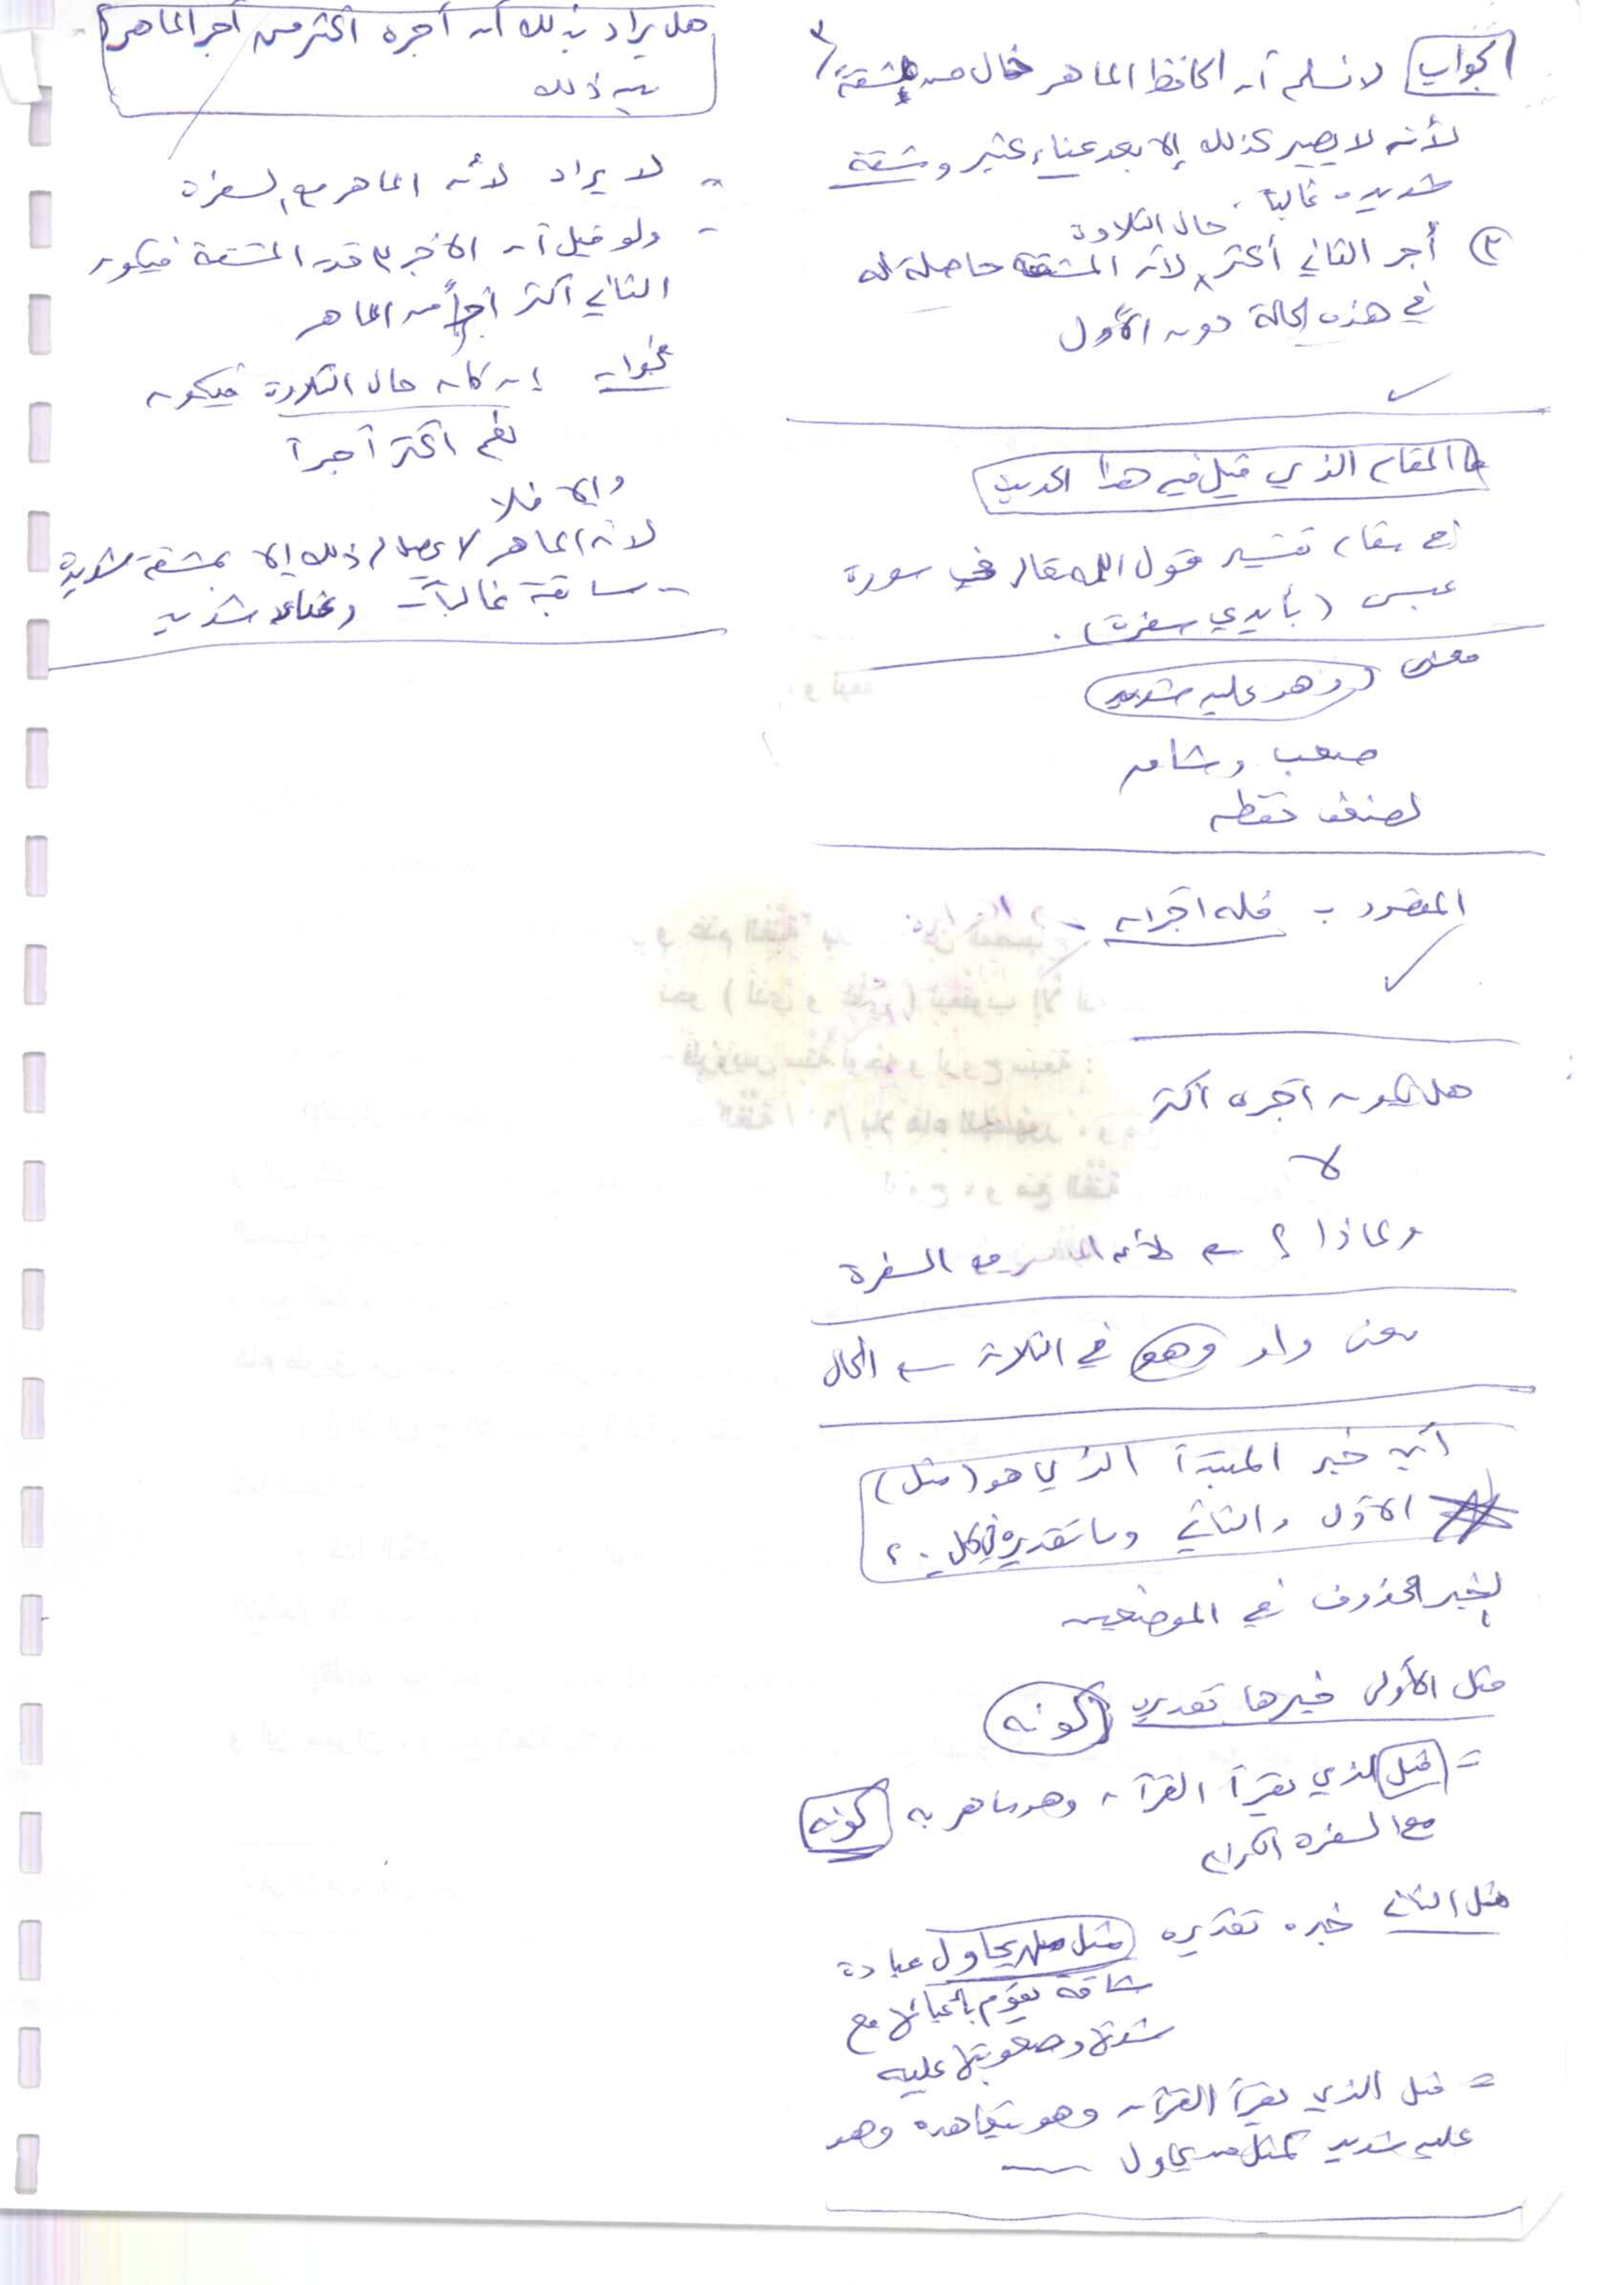 الجواب لا نسلم أن الحافظ الماهر خال من مشقة
لأنه لا يصير كذلك إلا بعد عناء كثير ومشقة
شديدة غالباً
حال التلاوة
٢ أجر الثاني أكثر لأن المشقة حاصلة له
في هذه الحالة دون الأول
المقام الذي قيل فيه هذا الحديث
في مقام تفسير قول الله تعالى في سورة
عبس (بأيدي سفرة).
معنى (وهو عليه شديد)
صعب وشاق
لضعف حفظه
المقصود بـ فله أجران
هل يكون أجره أكثر
لا
ولماذا؟ لأن الماهر مع السفرة
معنى واو وهو في الثلاث الحال
أين خبر المبتدأ الذي هو (مثل)
الأول والثاني وما تقديره في كل؟
الخبر محذوف في الموضعين
مثل الأولى خبرها تقديره (كونه)
= مثل الذي يقرأ القرآن وهو ماهر به كونه
مع السفرة الكرام
مثل الثاني خبره تقديره (مثل من يحاول عبادة
شاقة يقوم بأعبائها مع
شدتها وصعوبتها عليه
= مثل الذي يقرأ القرآن وهو يتعاهده وهو
عليه شديد كمثل من يحاول
هل يراد بذلك أن أجره أكثر من أجر الماهر؟
بين ذلك
- لا يراد لأن الماهر مع السفرة
- ولو قيل أن الأجر على قدر المشقة فيكون
الثاني أكثر أجراً من الماهر
الجواب إن كان حال التلاوة فيكون
نعم أكثر أجراً
وإلا فلا
لأن الماهر لا يصل لذلك إلا بمشقة شديدة
سابقة غالباً - وعناء شديد